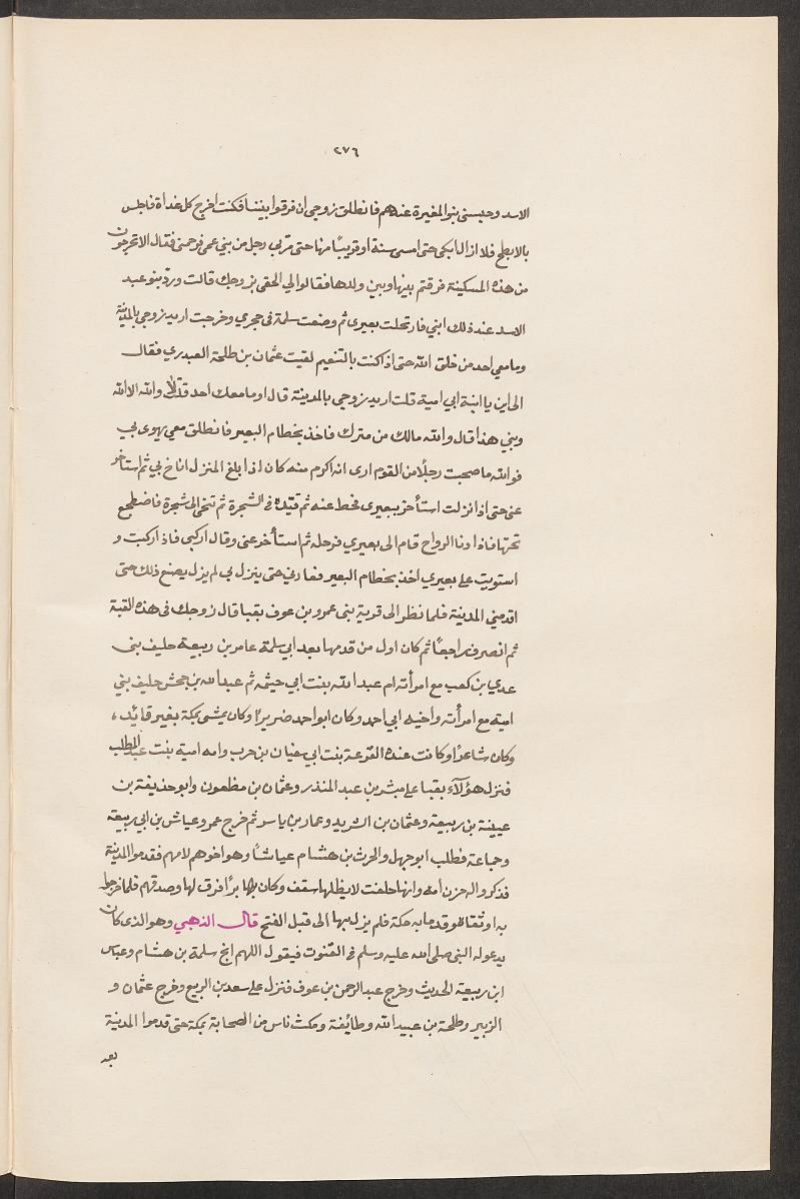 ٢٧٦
الاسد وحبسنى بنو المغيرة عندهم فانطلق زوجى ان فرقوا بيننا فكنت اخرج كل غداة فاجلس
بالابطح فلا ازال ابكى حتى امسى سنة او قريبًا منها حتى مر بي رجل من بني عمى فرحمنى فقال الا تحرجون
من هذه المسكينة فرقتم بينها وبين ولدها فقالوا لي الحقى بزوجك قالت ورد بنو عبد
الاسد عند ذلك ابني فارتحلت بعيرى ثم وضعت سلمة فى حجري وخرجت اريد زوجي بالمدينة
وما معي احد من خلق الله حتى اذ كنت بالتنعيم لقيت عثمان بن طلحة العبدري فقال
الى اين يا ابنة ابي امية قلت اريد زوجي بالمدينة قال او ما معك احد قلت لا والله الا الله
وبني هذا قال والله مالك من مترك فاخذ بخطام البعير فانطلق معي يهوى بي
فوالله ما صحبت رجلًا من القوم ارى انه اكرم منه كان اذا بلغ المنزل اناخ بي ثم استأخر
عنى حتى اذا نزلت استأخر ببعيرى فحط عنه ثم قيده فى الشجرة ثم تنحى الى شجرة فاضطجع
تحتها فاذا دنا الرواح قام الى بعيري فرحله ثم استأخر عنى وقال اركبى فاذ اركبت و
استويت على بعيري اخذ بخطام البعير فقادني حتى ينزل بي لم يزل يصنع ذلك حتى
اقدمني المدينة فلما نظر الى قرية بنى عمرو بن عوف بقبا قال زوجك فى هذه القبة
ثم انصرف راجعًا ثم كان اول من قدمها بعد ابي سلمة عامر بن ربيعة حليف بنى
عدي بن كعب مع امرأته ام عبد الله بنت ابي حيثمه ثم عبد الله بن جحش حليف بني
اميه مع امرأته واخيه ابي احد وكان ابو احد ضريرًا وكان يمشى بمكة بغير قائد،
وكان شاعرًا وكانت عنده الفرعة بنت ابي سفيان بن حرب وامه اميه بنت عبد المطلب
فنزل هؤلآء بقبا على مبشر بن عبد المنذر وعثمان بن مظعون وابو حذيفة بن
عيينة بن ربيعة وعثمان بن الشريد وعمار بن ياسر ثم خرج عمر وعياش بن ابي ربيعة
وجماعة فطلب ابو جهل والحرث بن هشام عياشًا وهو اخوهم لامهم فقدموا المدينة
فذكروا له حزن امه وانها حلفت لا يظلها سقف وكان بها برًا فرق لها وصدقهم فلما خرجا
به اوثقاه وقدما به مكة فلم يزل بها الى قبل الفتح قال الذهبي وهو الذى كان
يدعو له النبى صلى الله عليه وسلم فى القنوت فيقول اللهم انج سلمة بن هشام وعياش
ابن ربيعة الحديث وخرج عبد الرحمن بن عوف فنزل على سعد بن الربيع وخرج عثمان و
الزبير وطلحة بن عبيد الله وطائفة ومكث ناس من الصحابة بمكة حتى قدموا المدينة
بعد